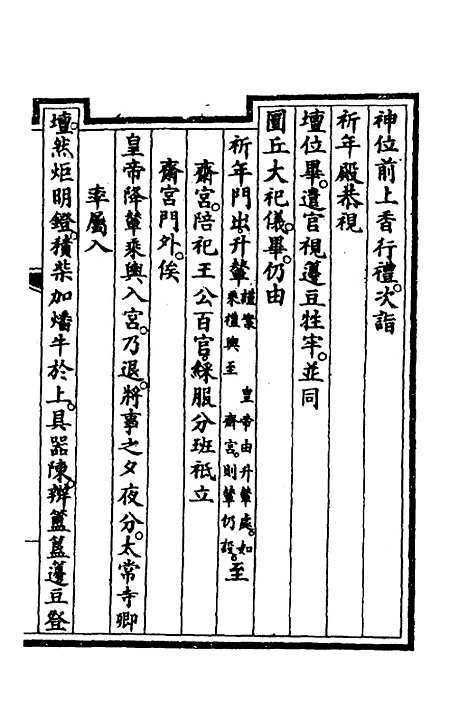 神位前上香行禮。次詣
祈年殿恭視
壇位畢。遣官視籩豆牲牢。並同
圜丘大祀儀。畢。仍由
祈年門出。升輦謹案 皇帝由升輦處。如乘禮輿至 齋宮。則輦仍設。至
齋宮。陪祀王公百官。綵服分班祇立
齋宮門外。俟
皇帝降輦乘輿入宮。乃退。將事之夕夜分。太常寺卿
率屬入
壇。然炬明鐙。積柴加燔牛於上。具器陳。辨簠簋籩豆登